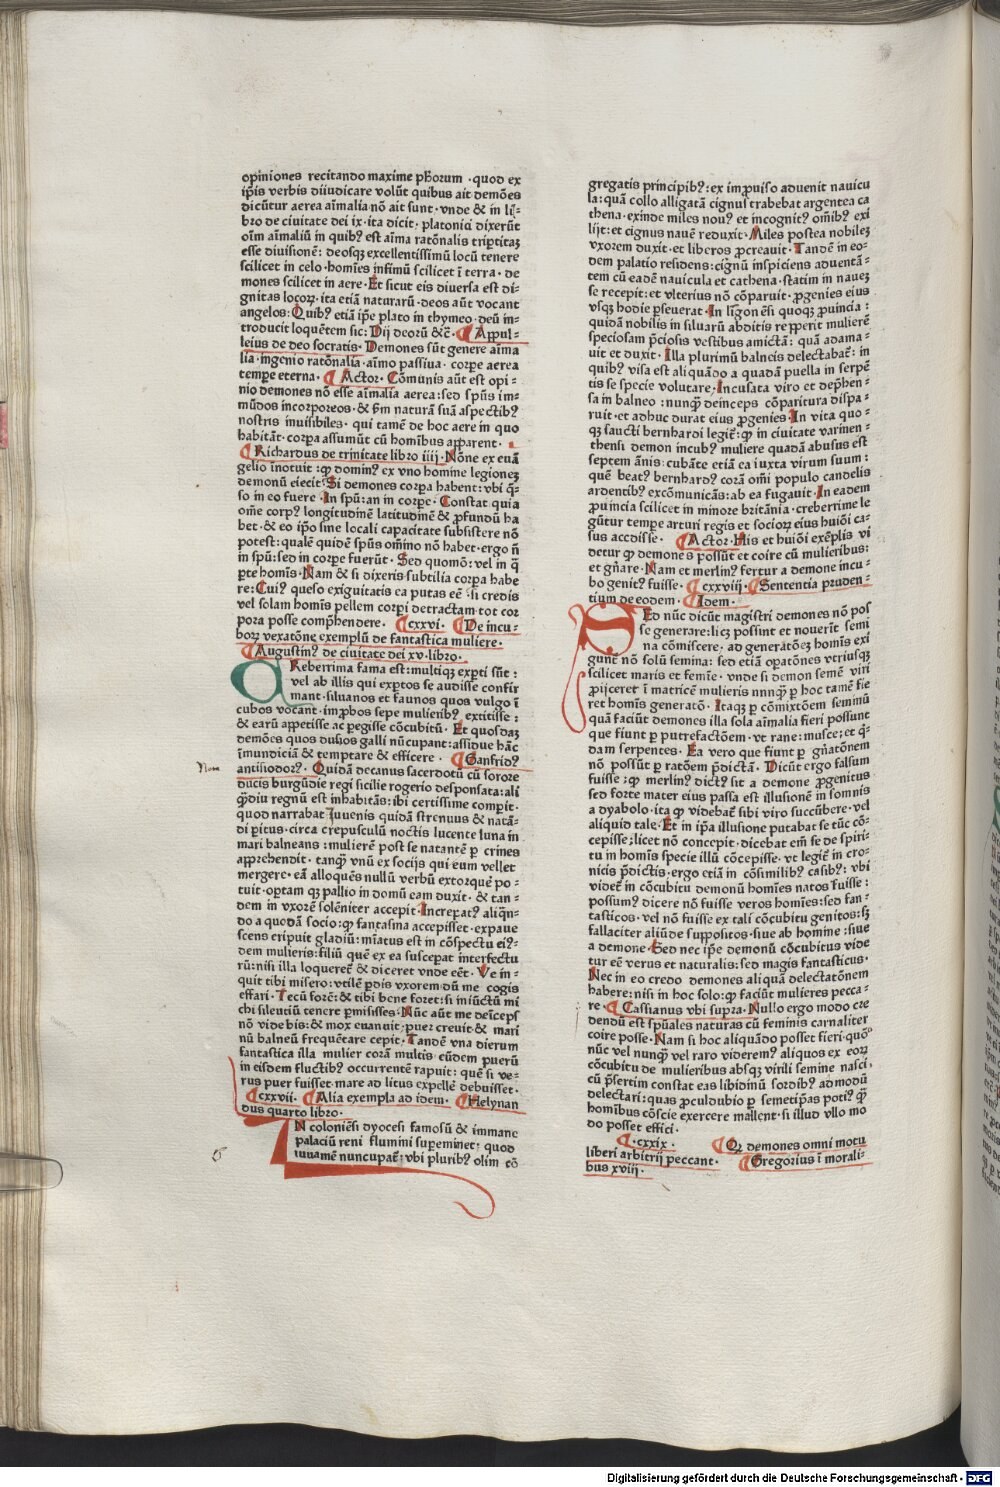 opiniones recitando maxime ph̃orum · quod ex
ip̃is verbis diiudicare volũt quibus ait demões
dicũtur aerea aĩmalia nõ ait sunt · vnde & in li⸗
bro de ciuitate dei ix · ita dicit · platonici dixerũt
oĩm aĩmaliũ in quibꝰ est aĩma ratõnalis triꝑtitaꝫ
esse diuisionẽ : deosqꝫ excellentissimũ locũ tenere
scilicet in celo · homĩes infimũ scilicet ĩ terra · de
mones scilicet in aere · Et sicut eis diuersa est di⸗
gnitas locoꝝ · ita etiã naturarũ · deos aũt vocant
angelos : Quibꝰ etiã ip̃e plato in thymeo · deũ in⸗
troducit loquẽtem sic : Dij deorũ &c̃ · ¶ Appul⸗
leius de deo socratis · Demones sũt genere aĩma
lia · ingenio ratõnalia · aĩmo passiua · corpe aerea
tempe eterna · ¶ Actor · Cõmunis aũt est opi⸗
nio demones nõ esse aĩmalia aerea : sed spũs im⸗
mũdos incorporeos · & ẜm naturã suã aspectibꝰ
nostris inuisibiles · qui tamẽ de hoc aere in quo
habitãt · corpa assumũt cũ homĩbus apparent ·
¶ Richardus de trinitate libro iiij · Nõne ex euã
gelio ĩnotuit : ꝙ dominꝰ ex vno homine legioneꝫ
demonũ eiecit · Si demones corpa habent : vbi q̃⸗
so in eo fuere · In spũ : an in corpe · Constat quia
om̃e corpꝰ longitudinẽ latitudinẽ & ꝓfundũ ha
bet · & eo ip̃o sine locali capacitate subsistere nõ
potest : qualẽ quidẽ spũs om̃ino nõ habet · ergo ñ
in spũ : sed in corpe fuerũt · Sed quomõ : vel in q̃
ꝑte homĩs · Nam & si dixeris subtilia corpa habe
re : Cuiꝰ queso exiguitatis ea putas eẽ · si credis
vel solam homĩs pellem corpi detractam tot cor
pora posse comp̃hendere · ¶ cxxvi · ¶ De incu⸗
boꝝ vexatõne exemplũ de fantastica muliere ·
¶ Augustinꝰ de ciuitate dei xv · libro ·
CReberrima fama est : multiqꝫ exꝑti sũt :
vel ab illis qui exꝑtos se audisse confir
mant · siluanos et faunos quos vulgo ĩ
cubos vocant · imꝓbos sepe mulieribꝰ extitisse :
& earũ appetisse ac pegisse cõcubitũ · Et quosdaꝫ
demões quos dusios galli nũcupant : assidue hãc
ĩmundiciã & temptare & efficere · ¶ Ganfridꝰ
antisiodorꝰ · Quidã decanus sacerdotũ cũ sorore
ducis burgũdie regi sicilie rogerio desponsata : ali
q̃diu regnũ est inhabitãs : ibi certissime comperit ·
quod narrabat Iuuenis quidã strenuus & natã⸗
di ꝑitus · circa crepusculũ noctis lucente luna in
mari balneans : mulierẽ post se natantẽ ꝑ crines
apprehendit · tanqꝫ vnũ ex socijs qui eum vellet
mergere · eã alloquẽs nullũ verbũ extorquẽ po⸗
tuit · oꝑtam qꝫ pallio in domũ eam duxit · & tan⸗
dem in vxorẽ solẽniter accepit · Increpatꝰ aliqñ⸗
do a quodã socio : ꝙ fantasma accepisset · expaue
scens eripuit gladiũ : mĩatus est in cõspectu eiꝰ⸗
dem mulieris : filiũ quẽ ex ea susceꝑat ĩnterfectu
rũ : nisi illa loqueret̃ & diceret vnde eẽt · Ve in⸗
quit tibi misero : vtilẽ ꝑdis vxorem dũ me cogis
effari · Tecũ forẽ : & tibi bene foret : si iniũctũ mi
chi silentiũ tenere ꝑmisisses · Nũc aũt me deĩceps
nõ videbis : & mox euanuit · puer creuit & mari
nũ balneũ frequẽtare cepit · Tandẽ vna dierum
fantastica illa mulier corã multis eũdem puerũ
in eisdem fluctibꝰ occurrentẽ rapuit : quẽ si ve⸗
rus puer fuisset · mare ad litus expellẽ debuisset ·
¶ cxxvii · ¶ Alia exempla ad idem · ¶ Helynan
dus quarto libro ·
IN coloniẽsi dyocesi famosũ & immane
palaciũ reni flumini supeminet : quod
iuuamẽ nuncupat̃ : vbi pluribꝰ olim cõ
Nota
gregatis principibꝰ : ex improuiso aduenit nauicu
la : quã collo alligatã cignus trahebat argentea ca
thena · exinde miles nouꝰ et incognitꝰ om̃ibꝰ exi
lijt : et cignus nauẽ reduxit · Miles postea nobileꝫ
vxorem duxit · et liberos ꝓcreauit · Tandẽ in eo⸗
dem palatio residens : cignũ inspiciens aduentã⸗
tem cũ eadẽ nauicula et cathena · statim in naueꝫ
se recepit : et vlterius nõ cõparuit · ꝓgenies eius
vsqꝫ hodie ꝑseuerat · In lĩgonẽsi quoqꝫ ꝓuincia :
quidã nobilis in siluarũ abditis repperit mulierẽ
speciosam p̃ciosis vestibus amictã : quã adama⸗
uit et duxit · Illa plurimũ balneis delectabat̃ : in
quibꝰ visa est aliquãdo a quadã puella in serpẽ
tis se specie volutare · Incusata viro et dep̃hen⸗
sa in balneo : nunqꝫ deinceps cõparitura dispa⸗
ruit · et adhuc durat eius ꝓgenies · In vita quo⸗
qꝫ sancti bernhardi legit̃ : ꝙ in ciuitate varinen⸗
thensi demon incubꝰ muliere quadã abusus est
septem ãnis : cubãte etiã ea iuxta virum suum :
quẽ beatꝰ bernhardꝰ corã om̃i populo candelis
ardentibꝰ excõmunicãs : ab ea fugauit · In eadem
ꝓuincia scilicet in minore britãnia · creberrime le
gũtur tempe arturi regis et socioꝝ eius huiõi ca⸗
sus accdisse · ¶ Actor · His et huiõi exẽplis vi
detur ꝙ demones possũt et coire cũ mulieribus :
et gñare · Nam et merlinꝰ fertur a demone incu⸗
bo genitꝰ fuisse · ¶ cxxviij · ¶ Sententia pruden⸗
tium de eodem · ¶ Idem ·
SEd nũc dicũt magistri demones nõ pos
se generare : licꝫ possint et nouerĩt semi
na cõmiscere · ad generatõeꝫ homĩs exi
gunt̃ nõ solũ semina : sed etiã oꝑatõnes vtriusqꝫ
scilicet maris et femĩe · vnde si demon semẽ viri
ꝓijceret ĩ matricẽ mulieris nunqꝫ ꝑ hoc tamẽ fie
ret homĩs generatõ · Itaqꝫ ꝑ cõmixtõem seminũ
quã faciũt demones illa sola aĩmalia fieri possunt
que fiunt ꝑ putrefactõem · vt rane : musce : et q̃⸗
dam serpentes · Ea vero que fiunt ꝑ gñatõnem
nõ possũt ꝑ ratõem p̃dictã · Dicũt ergo falsum
fuisse : ꝙ merlinꝰ dictꝰ sit a demone ꝓgenitus
sed forte mater eius passa est illusionẽ in somnis
a dyabolo · ita ꝙ videbat̃ sibi viro succũbere · vel
aliquid tale · Et in ip̃a illusione putabat se tũc cõ⸗
cepisse ; licet nõ concepit · dicebat em̃ se de spiri⸗
tu in homĩs specie illũ cõcepisse · vt legit̃ in cro⸗
nicis p̃dictis · ergo etiã in cõsimilibꝰ casibꝰ : vbi
videt̃ in cõcubitu demonũ homĩes natos fuisse :
possumꝰ dicere nõ fuisse veros homĩes : sed fan⸗
tasticos · vel nõ fuisse ex tali cõcubitu genitos : sꝫ
fallaciter aliũde suppositos · siue ab homine : siue
a demone · Sed nec ip̃e demonũ cõcubitus vide
tur eẽ verus et naturalis : sed magis fantasticus ·
Nec in eo credo demones aliquã delectatõnem
habere : nisi in hoc solo : ꝙ faciũt mulieres pecca⸗
re · ¶ Cassianus vbi supra · Nullo ergo modo cre
dendũ est spũales naturas cũ feminis carnaliter
coire posse · Nam si hoc aliquãdo posset fieri · quõ
nũc vel nunqꝫ vel raro viderem̃ aliquos ex eoꝝ
cõcubitu de mulieribus absqꝫ virili semine nasci ·
cũ p̃sertim constat eas libidinũ sordibꝰ admodũ
delectari : quas ꝓculdubio ꝑ semetip̃as potiꝰ qꝫ
homĩbus cõscie exercere mallent · si illud vllo mo
do posset effici ·
¶ · cxxix · ¶ Qꝫ demones omni motu
liberi arbitrij peccant · ¶ Gregorius ĩ morali⸗
bus xviij ·
Digitalisierung gefördert durch die Deutsche Forschungsgemeinschaft - DFG